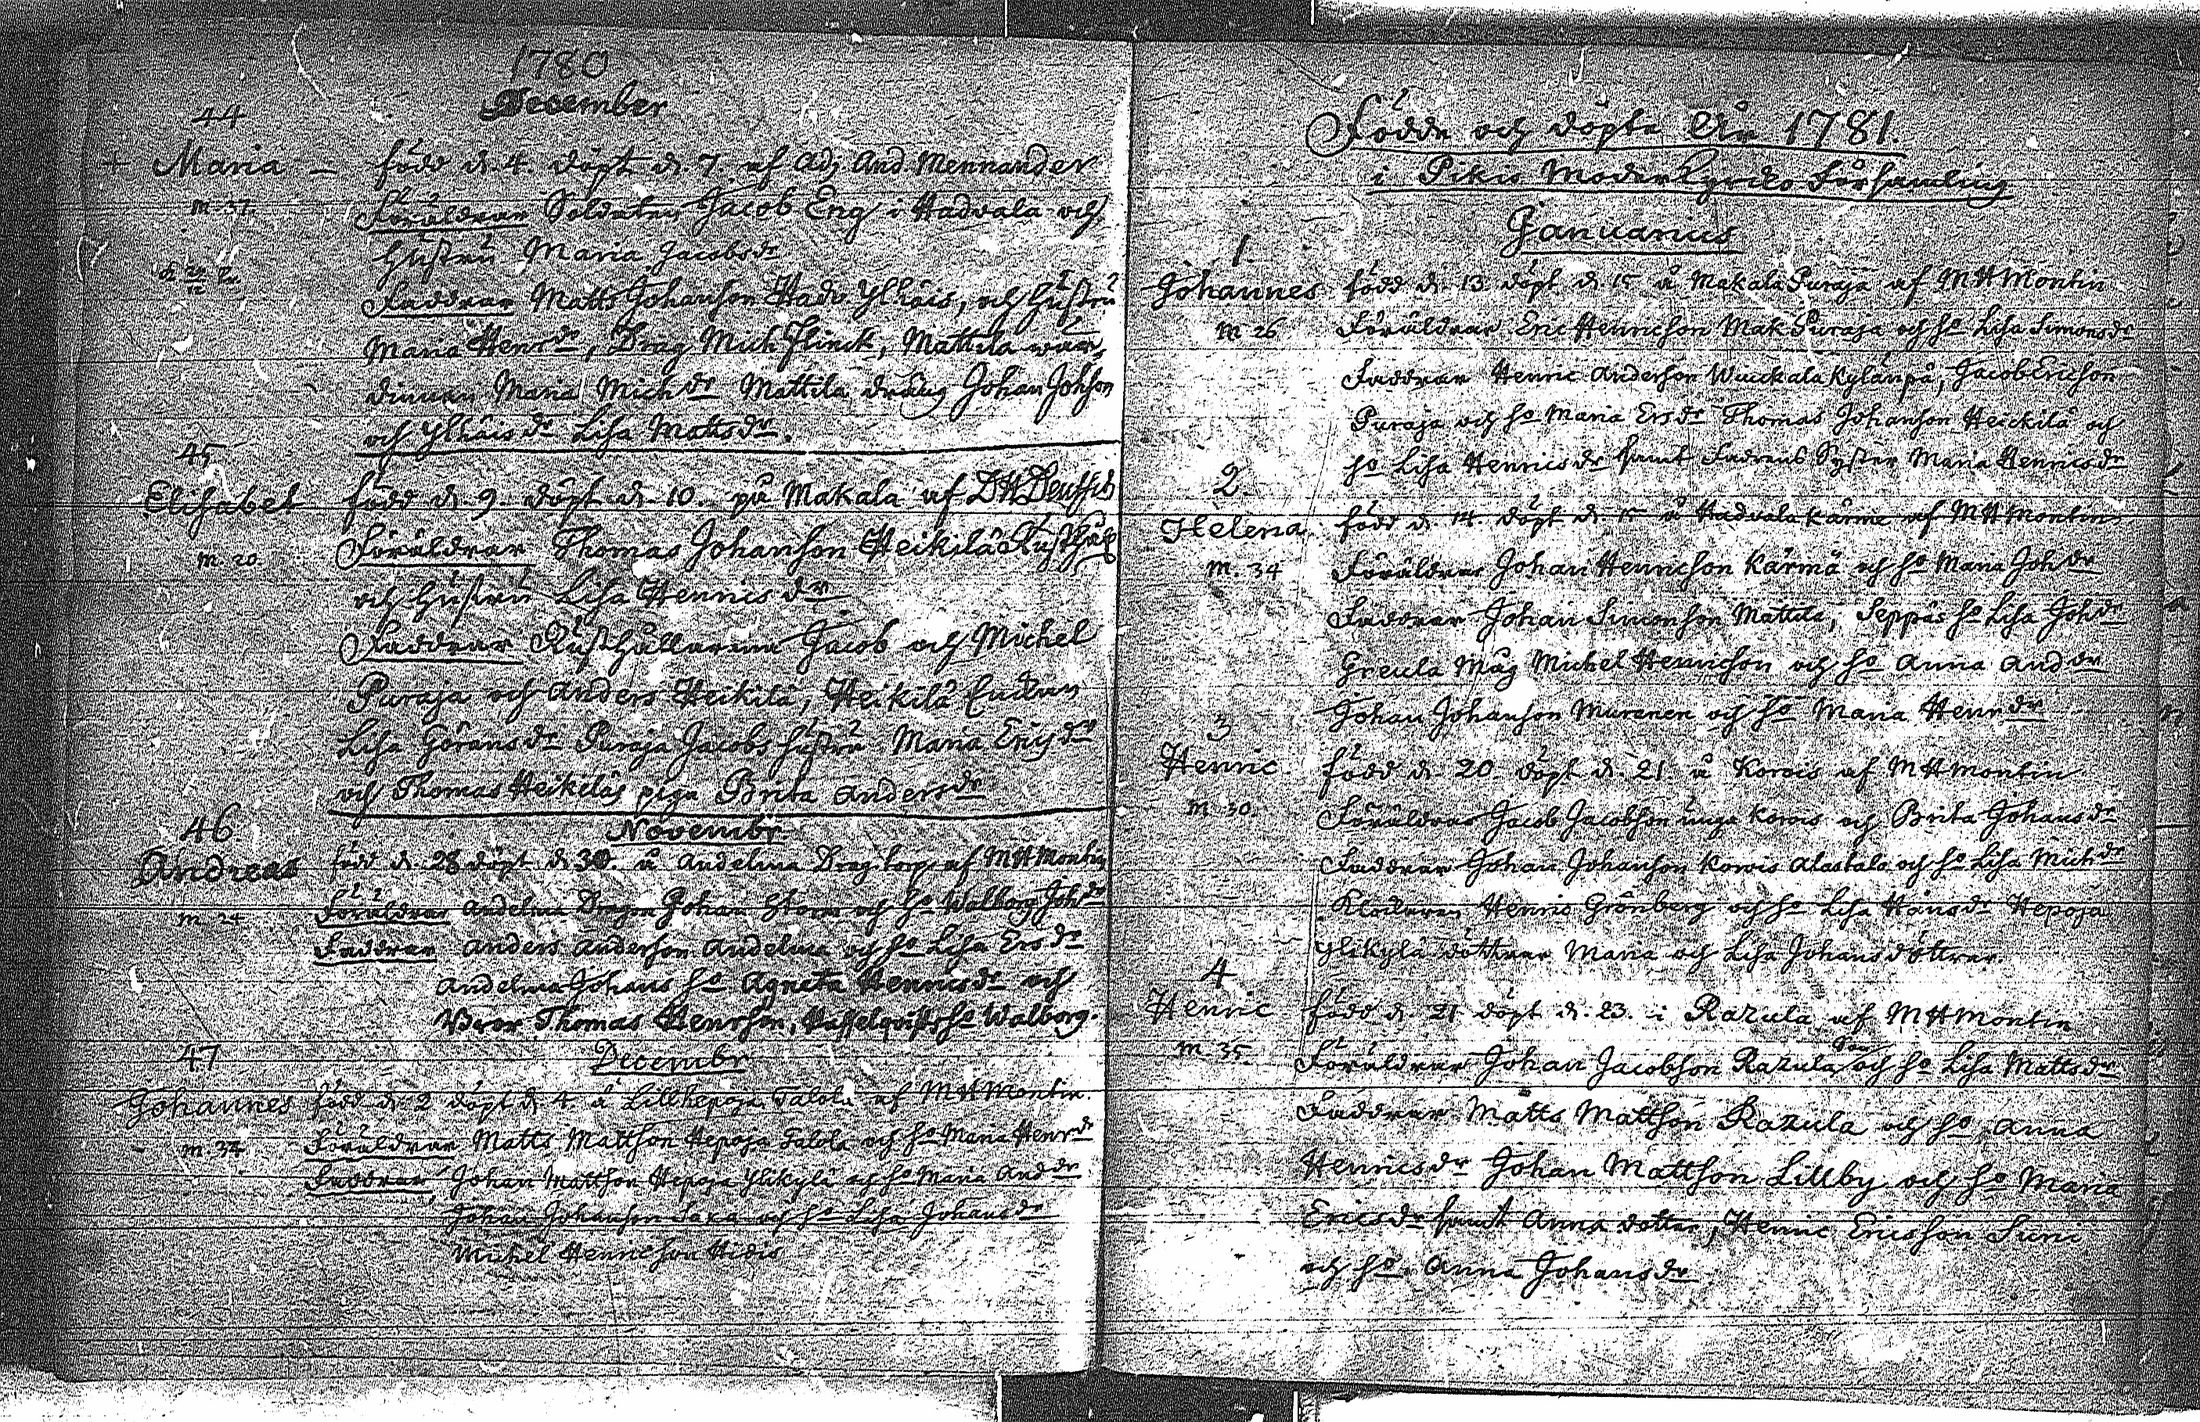 1780
December
44
+ Maria – född d. 4. döpt d. 7. af Adj And. Mennander
m. 37. Föräldrar Soldaten Jacob Eng i Hadvala och
Hustru Maria Jacobsdr
Faddrar Matts Johanson Hadv Ylhäis, och Hustru
Maria Henrsdr, Drag Mich Flinck, Mattila wär-
dinnan Maria Michdr Mattila dräng Johan Johson
och Ylhäis dr Lisa Mattsdr.
45
Elisabet född d. 9. döpt d. 10. på Makala af DH
m. 20 Föräldrar Thomas Johanson Heikilä
och Hustru Lisa Henricsdr
Faddrar Rusthållarena Jacob och Michel
Puraja och Anders Heikilä, Heikilä Enckan
Lisa Göransdr Puraja Jacobs hustru Maria Ericsdr
och Thomas Heikiläs piga Brita Andersdr
46 Novembr
Andreas född d. 28 döpt d 30. å Andelma Drag. torp af MH Montin
m. 24 Föräldrar Andelma Dragon Johan Storm och ho Walborg Johdr
Faddrar Anders Anderson Andelma och ho Lisa Ersdr
Andelma Johans ho Agneta Henricsdr och
Bror Thomas Henrson, Hasselqvists ho Walborg.
47 Decembr
Johannes född d. 2 döpt d 4. å Lill Hepoja Talola af MH Montin.
m. 34 Föräldrar Matts Mattson Hepoja Talola och ho Maria Henrdr
Faddrar Johan Mattson Hepoja Ylikylä och ho Maria Anddr
Johan Johanson Saxa och ho Lisa Johansdr
Michel Henricson Hidis
Födde och döpte År 1781.
i Pikis Moderkyrcko Församling
Januarius
1.
Johannes född d. 13 döpt d. 15 å Makala Puraja af MH Montin
m 26 Föräldrar Eric Henricson Mak Puraja och ho Lisa Simonsdr
Faddrar Henric Anderson Wuckala Kylänpä, Jacob Ericson
Puraja och ho Maria Ersdr Thomas Johanson Heickilä och
ho Lisa Henricsdr samt Fadrens Syster Maria Henricsdr
2
Helena född d. 14. döpt d. 15 å Hadvala Kärmä af MH Montin
m. 34 Föräldrar Johan Henricson Kärmä och ho Maria Johdr
Faddrar Johan Simonson Mattila, Seppäs ho Lisa Johdr
Greula Måg Michel Henricson och ho Anna Anddr
Johan Johanson Muranen och ho Maria Henrdr
3
Henric född d 20 döpt d. 21. å Korois af MH Montin
m. 30. Föräldrar Jacob Jacobson unga Korois och Brita Johansdr
Faddrar Johan Johanson Korois Alastalo och ho Lisa Michdr
Klockaren Henric Grönberg och ho Lisa Hansdr Hepoja
Ylikylä döttrar Maria och Lisa Johans döttrar.
4
Henric född d 21 döpt d. 23. i Razula af MH Montin
m. 35. Föräldrar Johan Jacobson Razula och ho Lisa Mattsdr
Faddrar Matts Mattson Razula och ho Anna
Henricsdr Johan Mattson Lillby och ho Maria
Ericsdr samt Anna dotter, Henric Ericsson Suni
och ho. Anna Johansdr